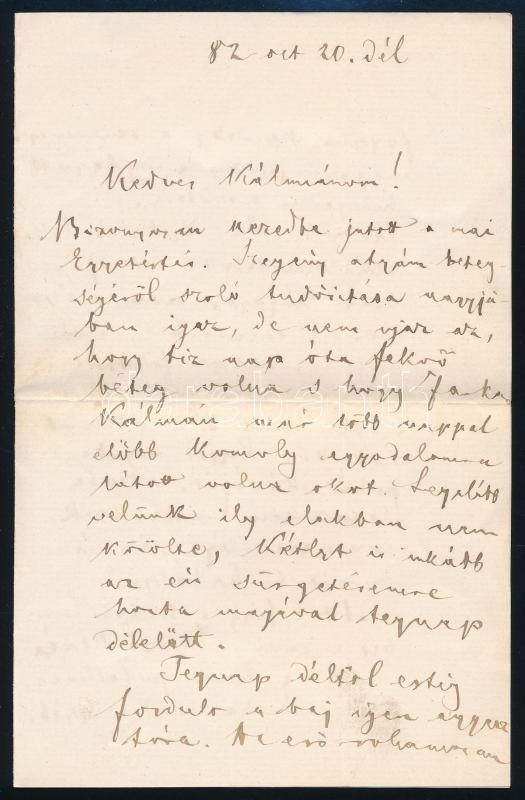 82 oct 20. dél
Kedves Kálmánom!
Bizonyosan kezedbe jutott a mai
Egyetértés. Szegény atyám beteg-
ségéről szoló tudósitása nagyjá-
ban igaz, de nem igaz az,
hogy tiz nap óta fekvő
beteg volna s hogy
Kálmán már több nappal
előbb komoly aggodalomra
látott volna okot. Legalább
velünk ily alakban nem
közölte, Kétlyt is inkább
az én sürgetésemre
hozta magával tegnap
délelött.
Tegnap déltöl estig
fordult a baj igen
Az erö rohamosan
darabanth